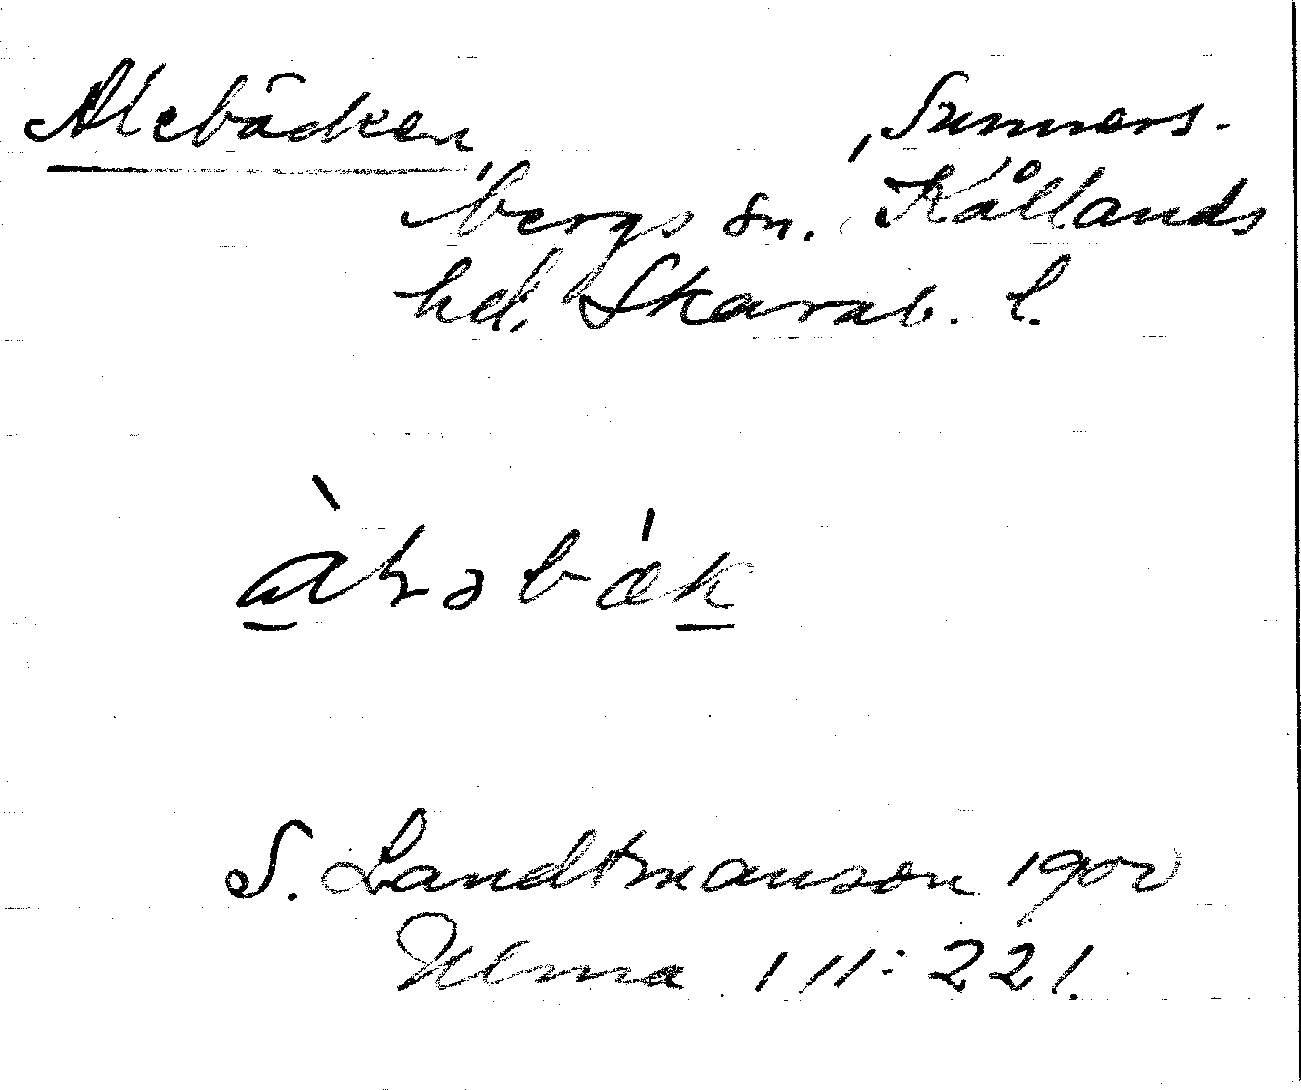 Alebäcken, Sunners-
bergs sn. Kållands
hd, Skarab. l.
S. Landtmanson 1900
Ulma 111:221.